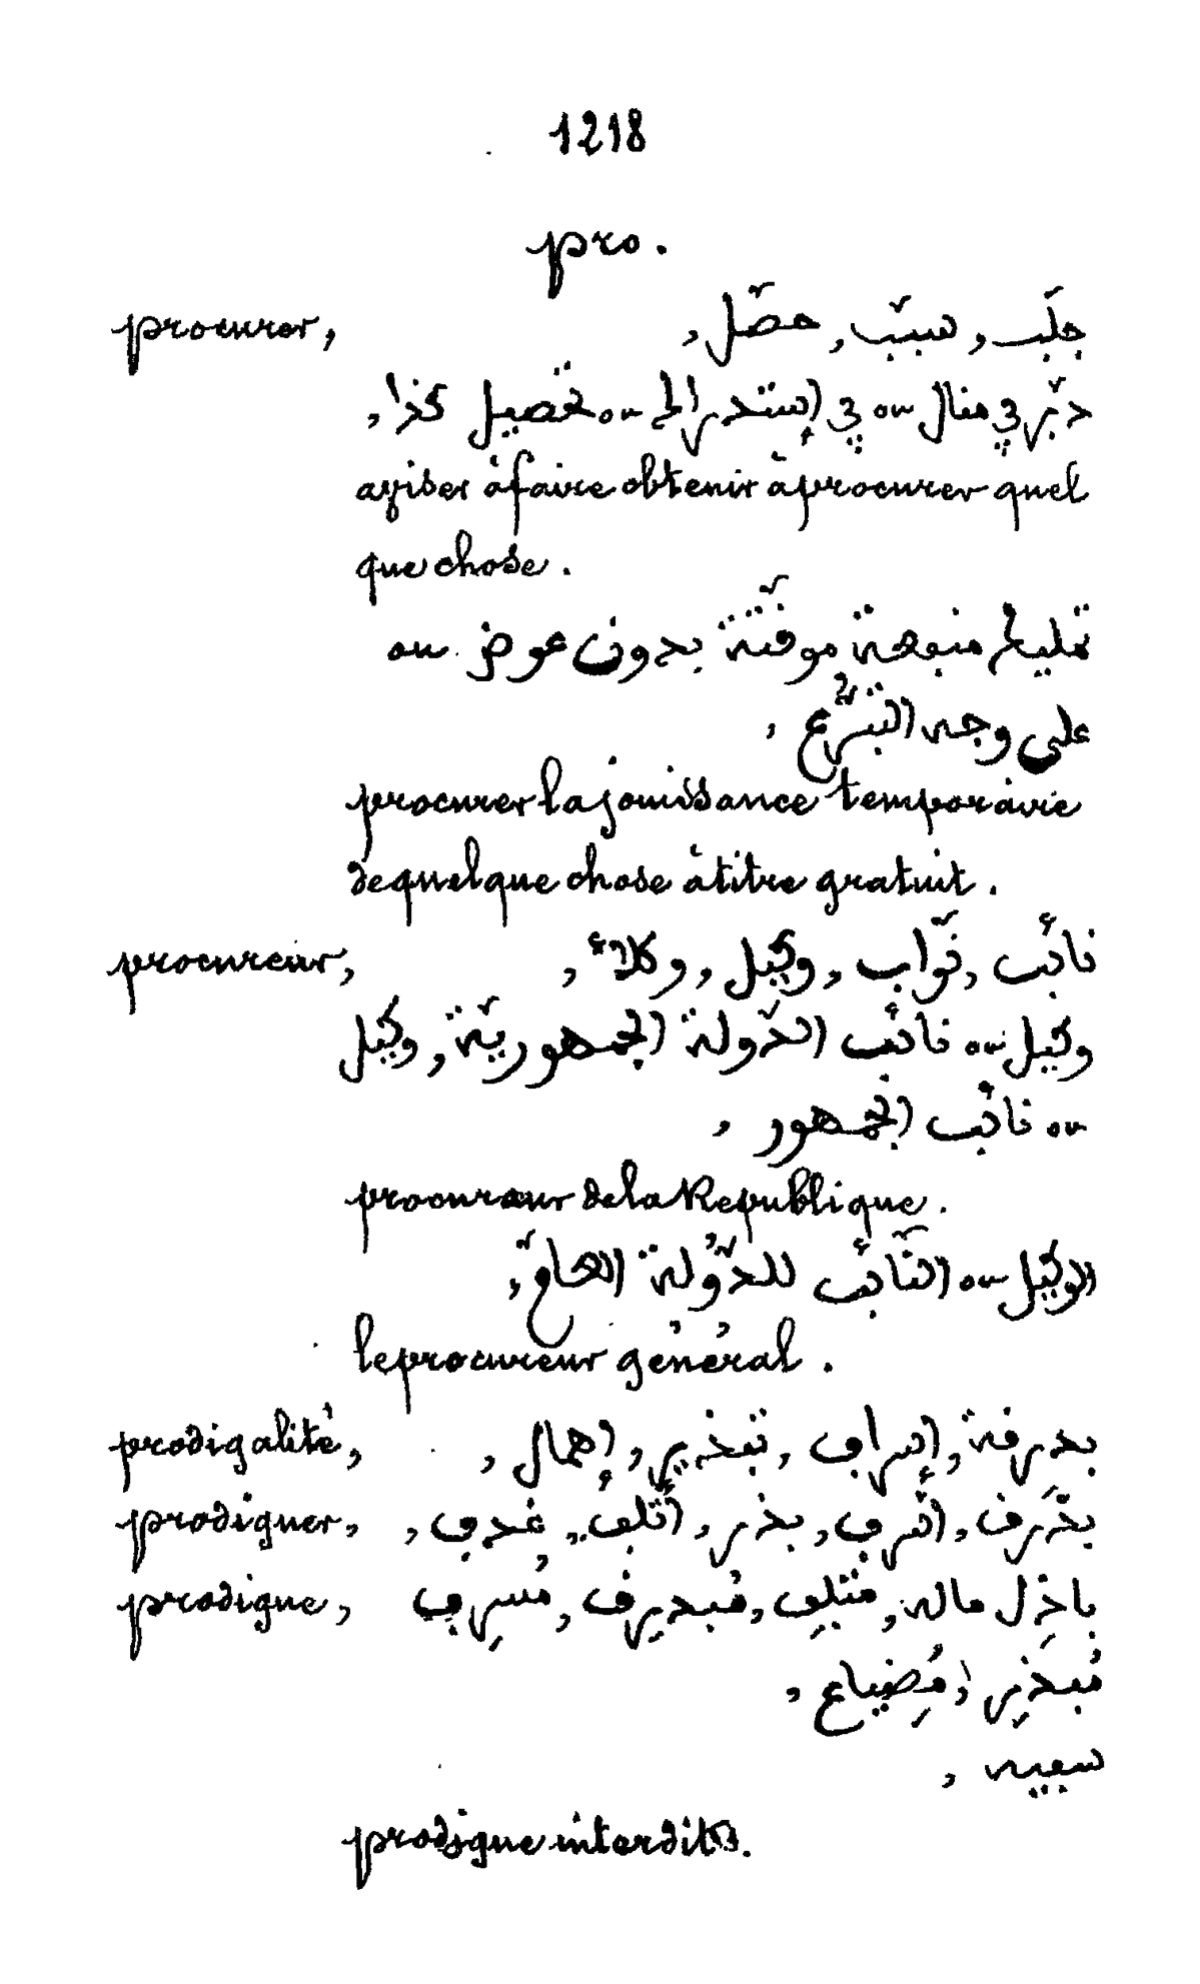 1218
pro.
procurer, جلَب, سبّب, حصّل,
دبّر في منال ou في إستدراك ou تحصيل كذا,
aviser à faire obtenir à procurer quel
que chose.
تمليك منفعة موقّتة بدون عوض ou
على وجه التبرّع,
procurer la jouissance temporaire
de quelque chose à titre gratuit.
procureur, نائب, نوّاب, وكيل, وكلاء,
وكيل ou نائب الدّولة الجمهوريّة, وكيل
ou نائب الجمهور,
procureur de la Republique.
الوكيل ou النّائب للدّولة العامّ,
le procureur général.
prodigalité, بدرفة, إسراف, تبذير, إهمال,
prodiguer, بدّرف, أسرف, بذر, أتلف, غدف,
prodigue, باذِل ماله, مُتلِف, مُبدرِف, مُسرِف
مُبذِر, مِضياع,
سفيه,
prodigue interdit.